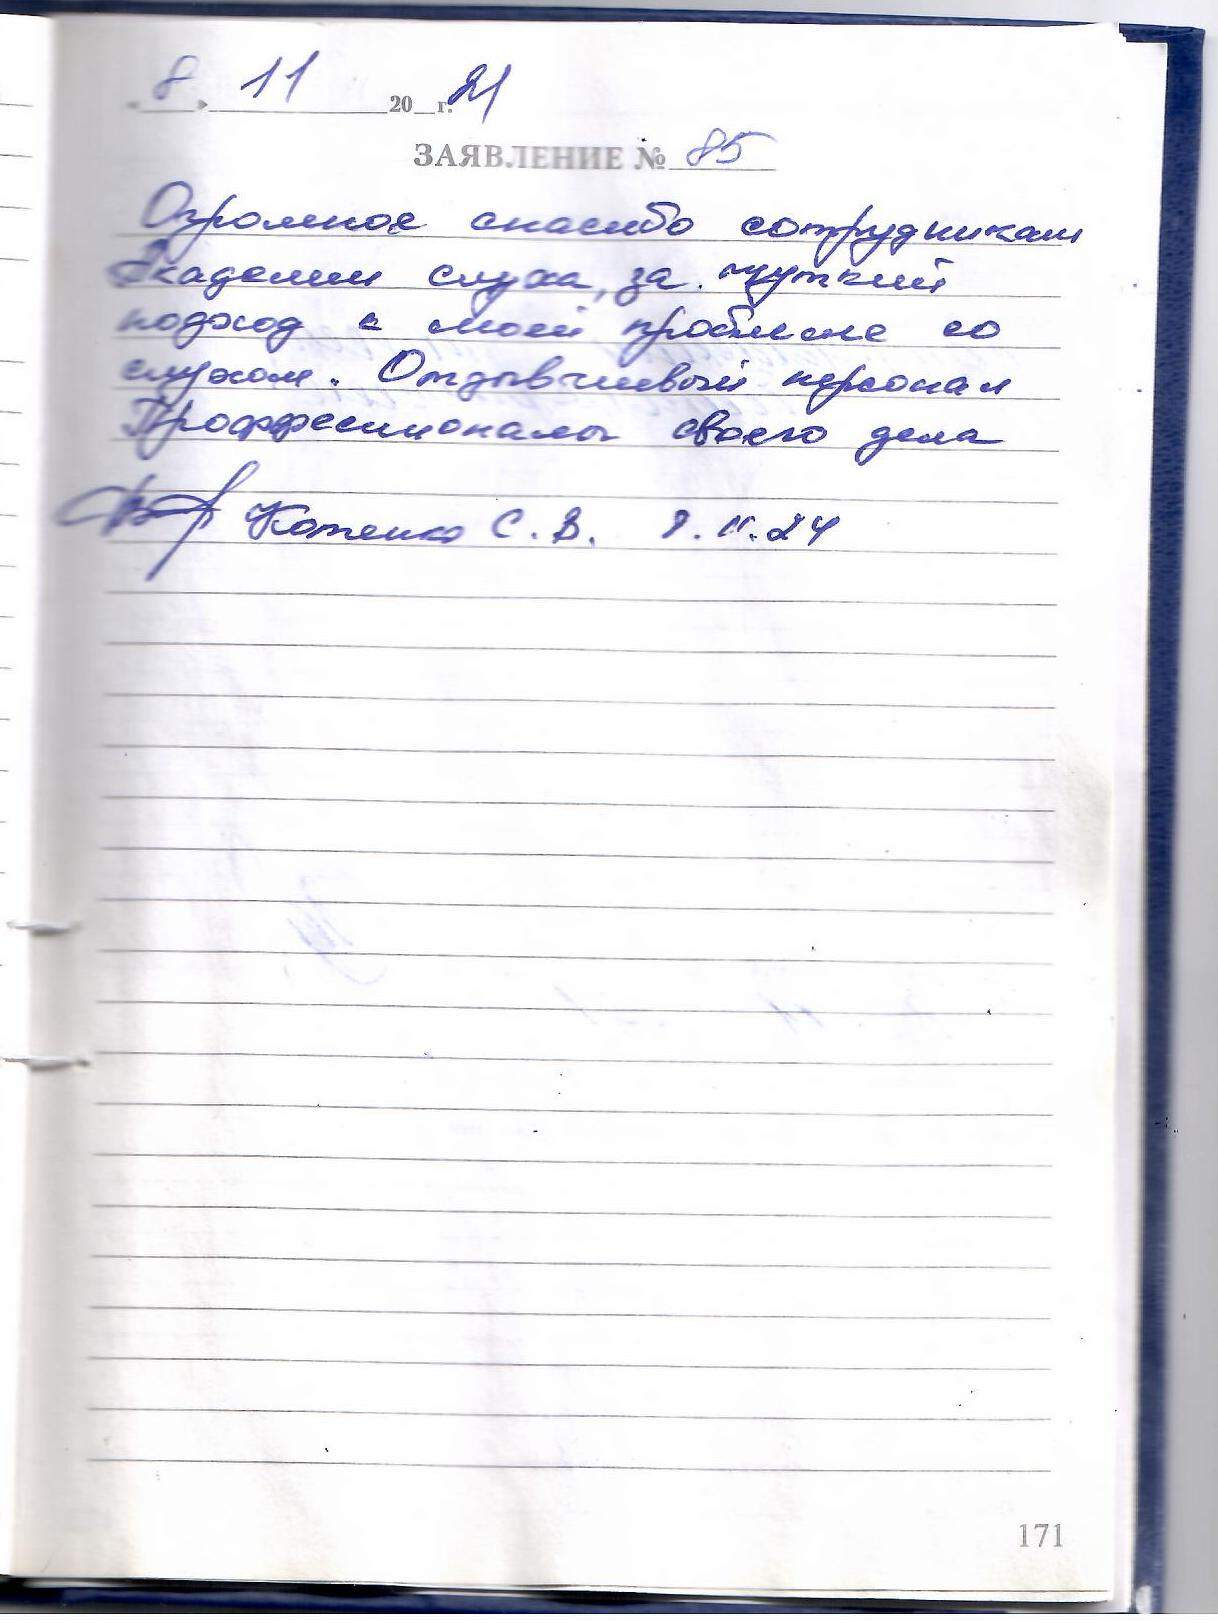 «8» 11 20__г. 21
ЗАЯВЛЕНИЕ № 85
Огромное спасибо сотрудникам
Академии слуха, за чуткий
подход к моей проблеме со
слухом. Отзывчивый персонал
Проффесионалы своего дела
Котенко С.В. 8.11.24
171